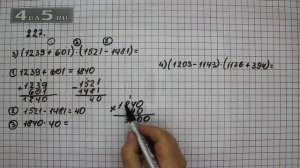 4A5.RU
227.
① ③ ②
3) (1239 + 601) · (1521 - 1481) =
4) (1203 - 1143) · (1176 + 394) =
① 1239 + 601 = 1840
+ 1239
601
1240
- 1521
1481
40
② 1521 - 1481 = 40
③ 1840 · 40 =
× 1840
40